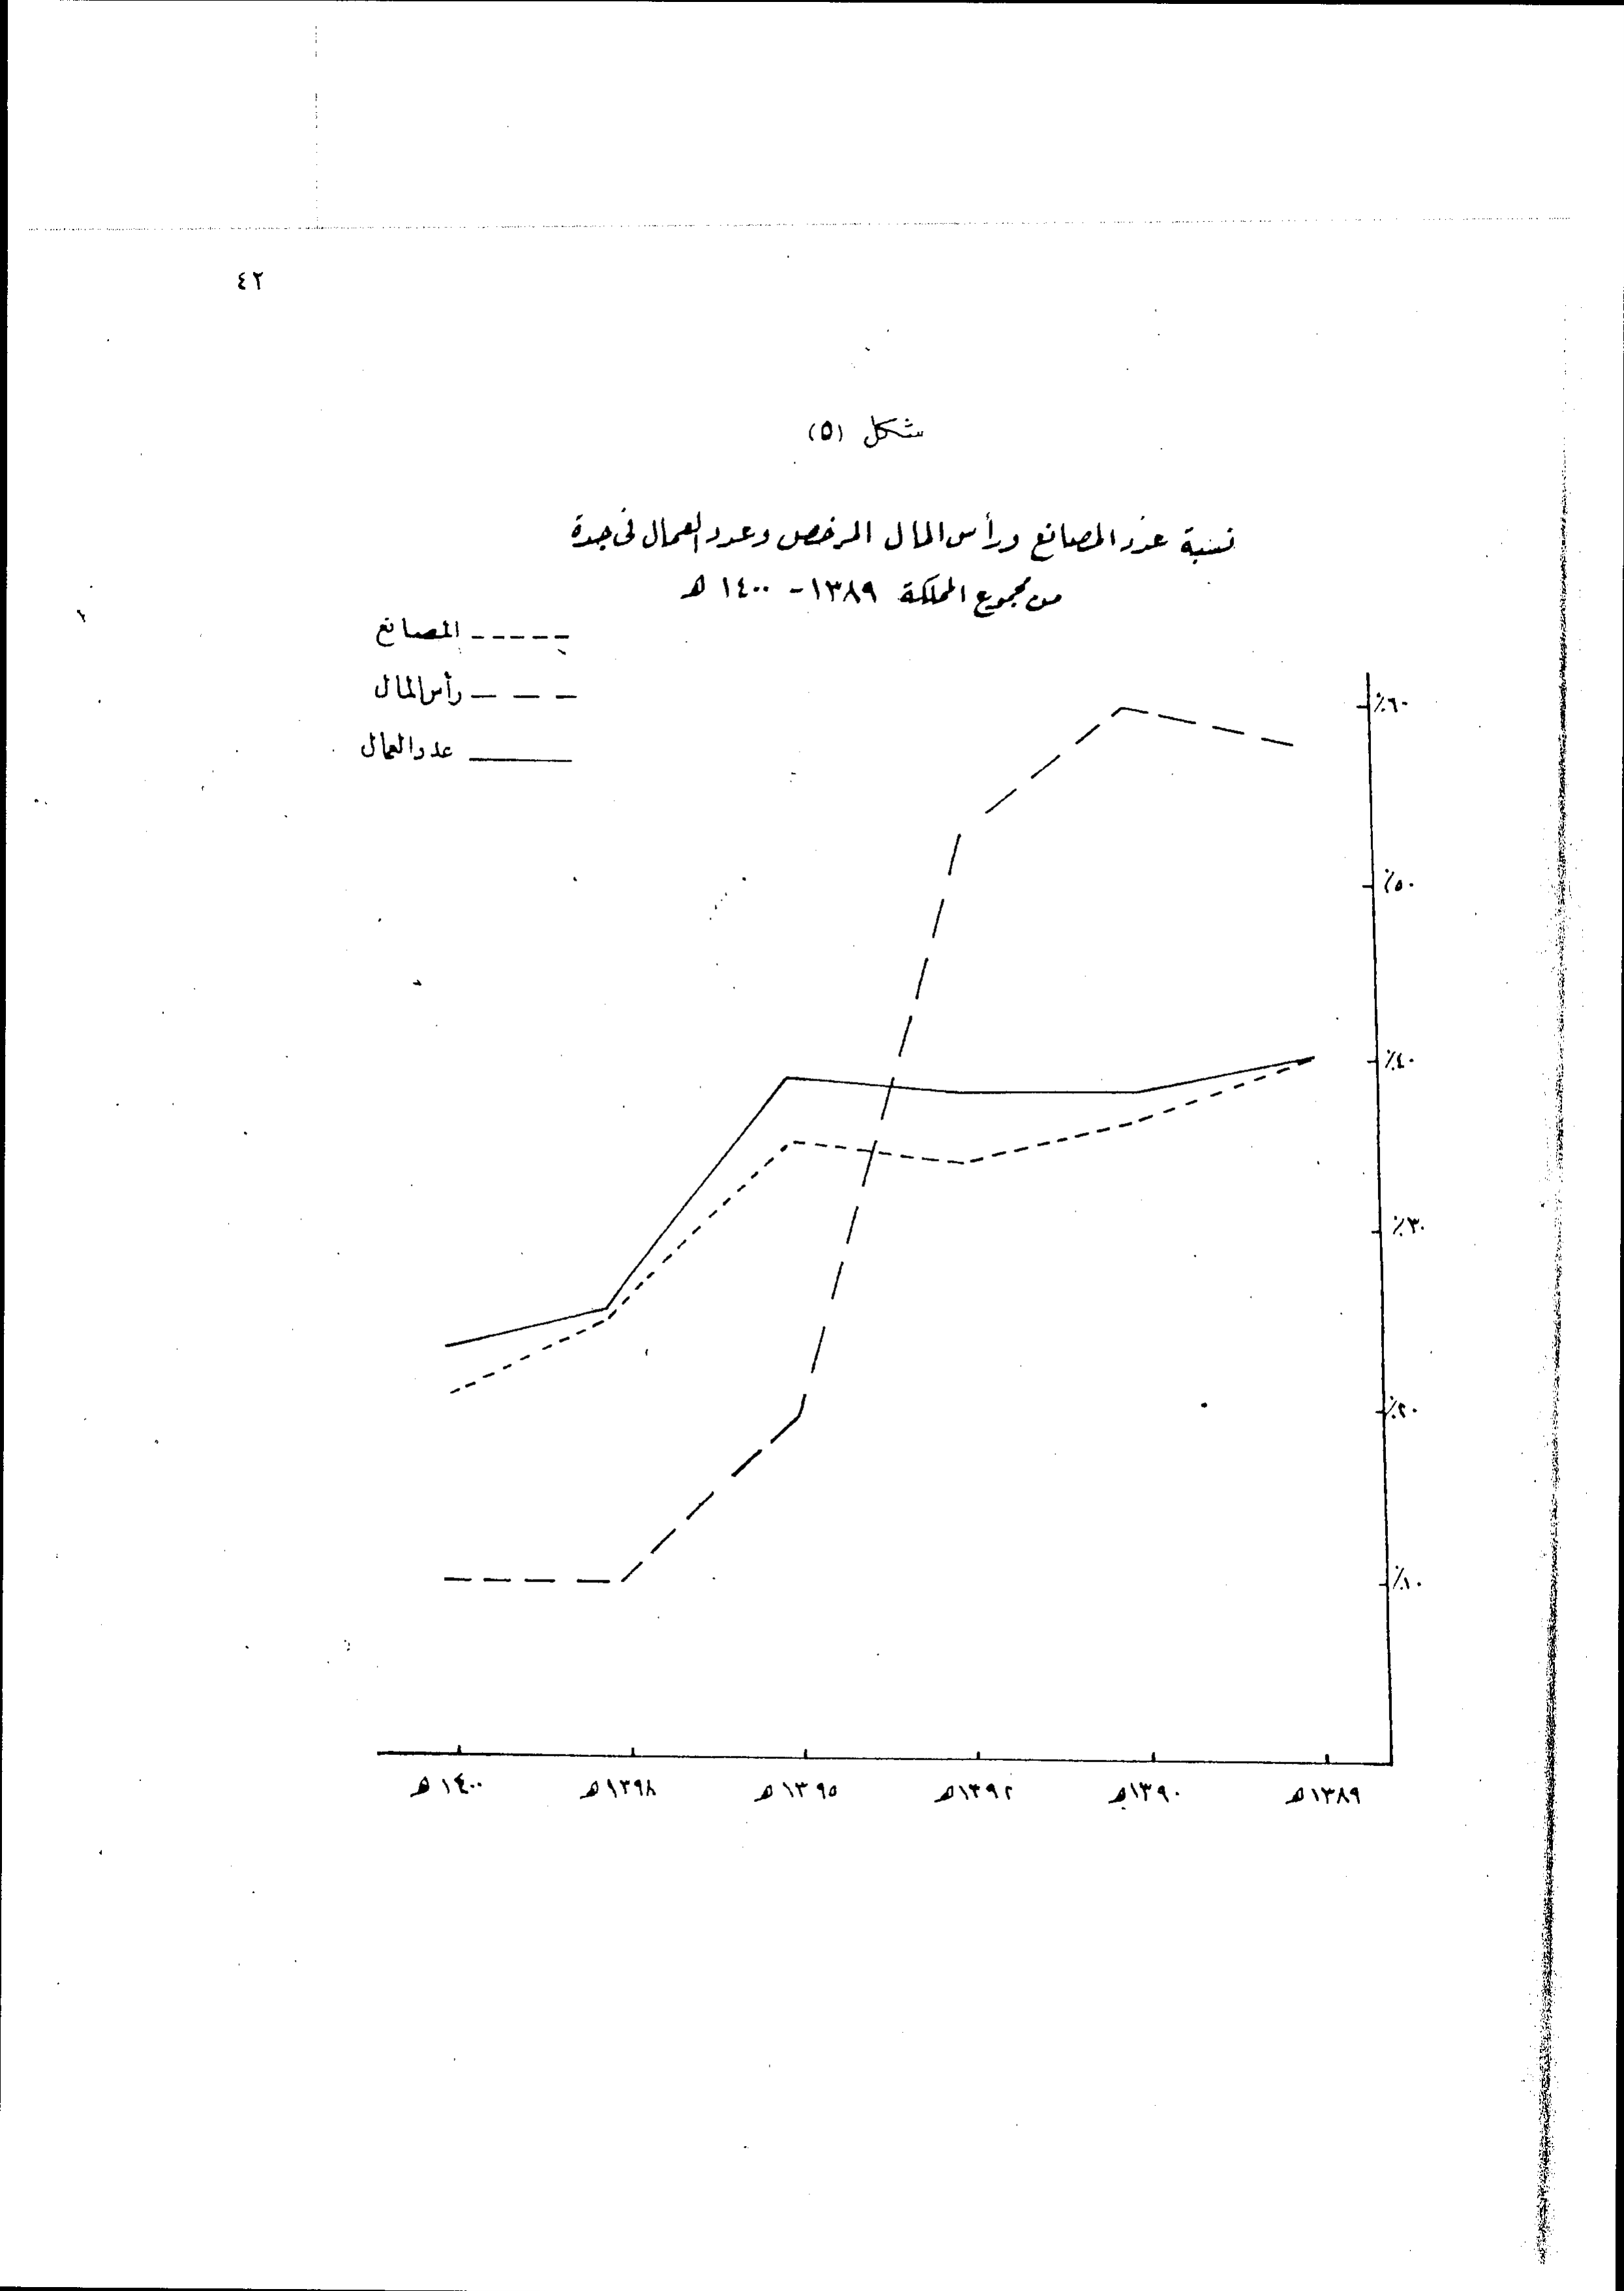 ٤٢
شكل (٥)
نسبة عدد المصانع ورأس المال المرخص وعدد العمال في جدة
من مجموع المملكة ١٣٨٩ - ١٤٠٠ هـ
المصانع
رأس المال
عدد العمال
٪٦٠
٪٥٠
٪٤٠
٪٣٠
٪٢٠
٪١٠
١٣٨٩هـ ١٣٩٠هـ ١٣٩٢هـ ١٣٩٥هـ ١٣٩٨هـ ١٤٠٠هـ